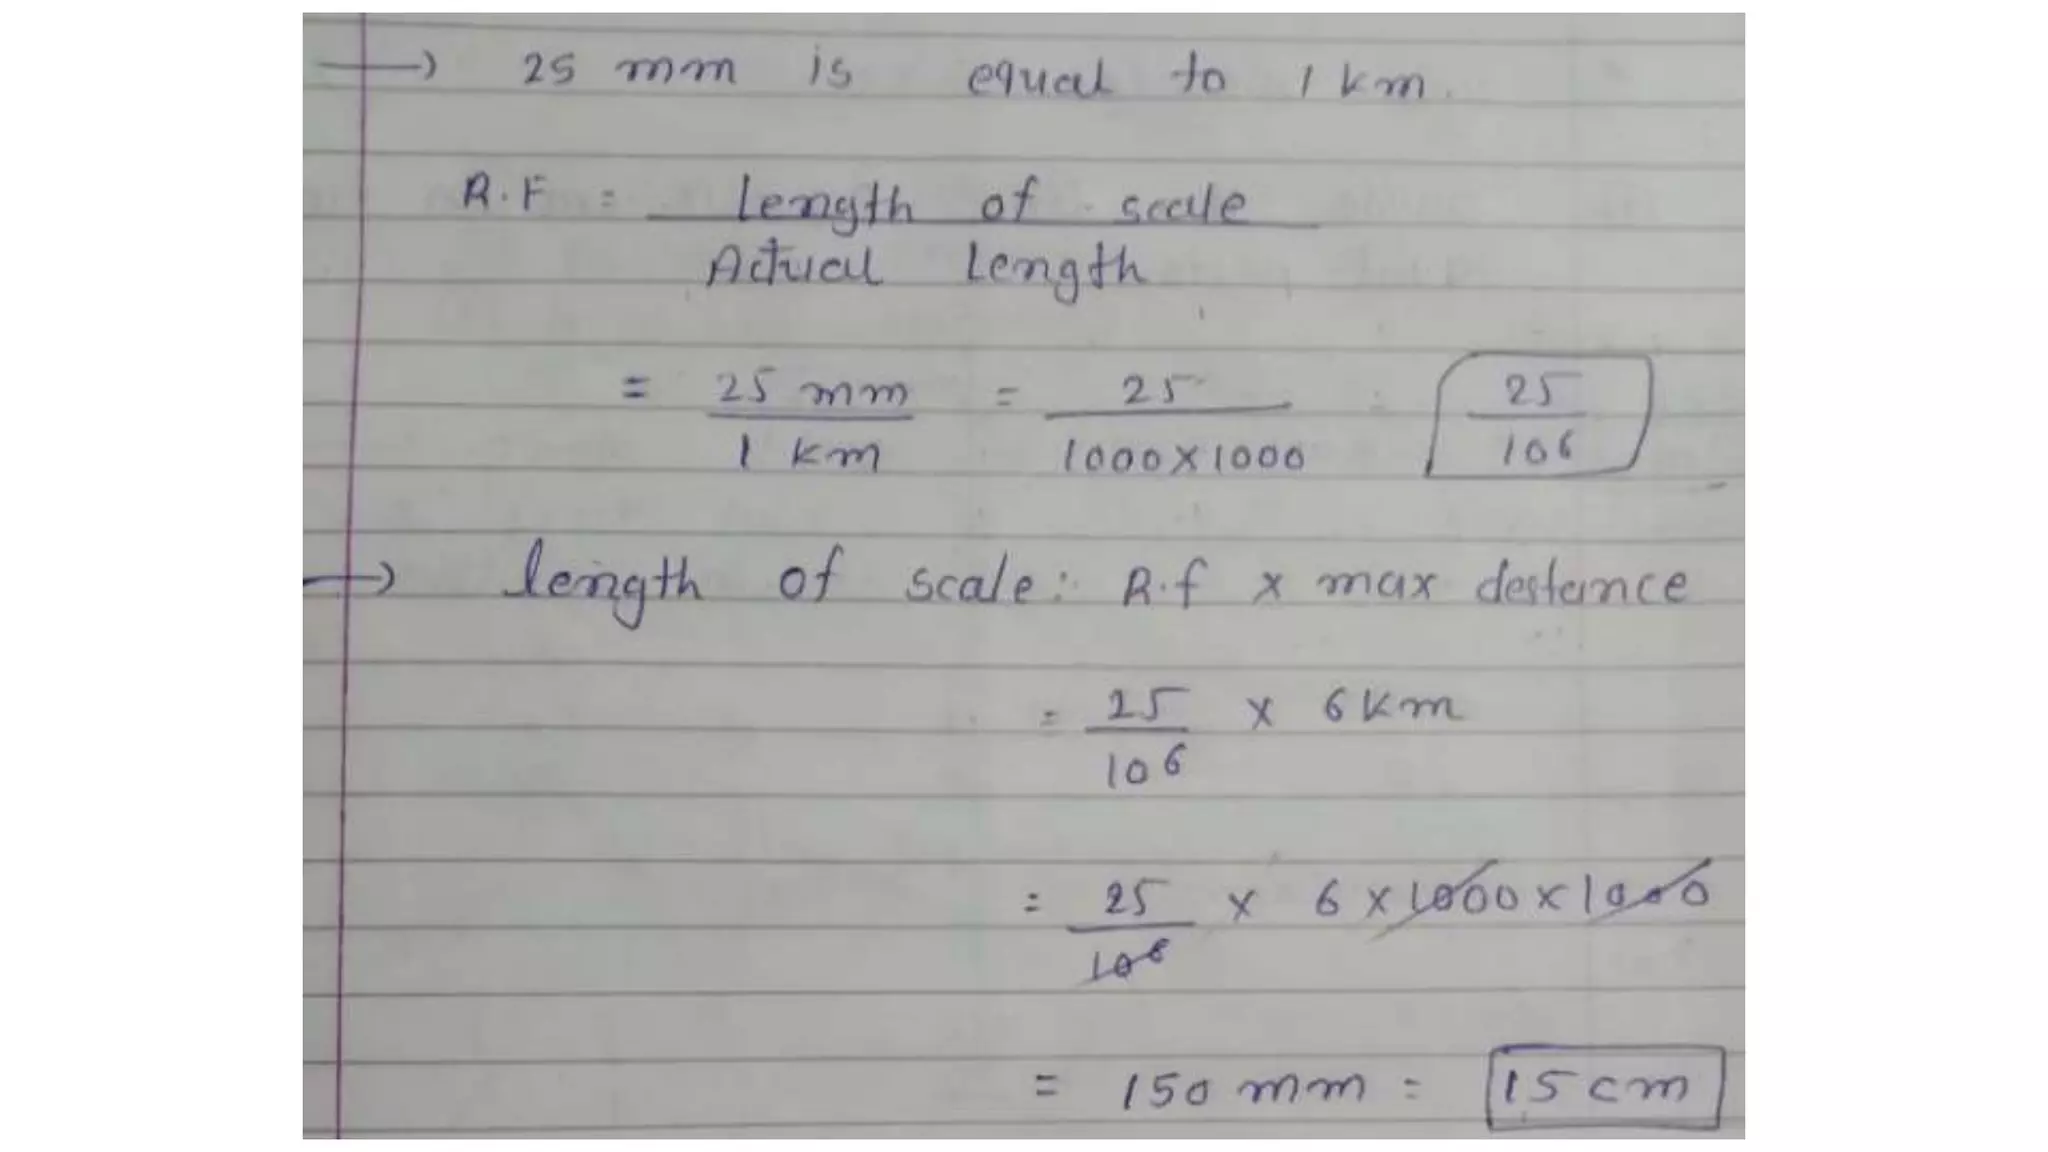 → 25 mm is equal to 1 km.
R.F = Length of scale
Actual Length
= 25 mm / 1 km = 25 / 1000×1000 = 25 / 10⁶
→ length of scale: R.f × max destance
= 25 / 10⁶ × 6 km
= 25 / 10⁶ × 6 × 1000 × 1000
= 150 mm = 15 cm